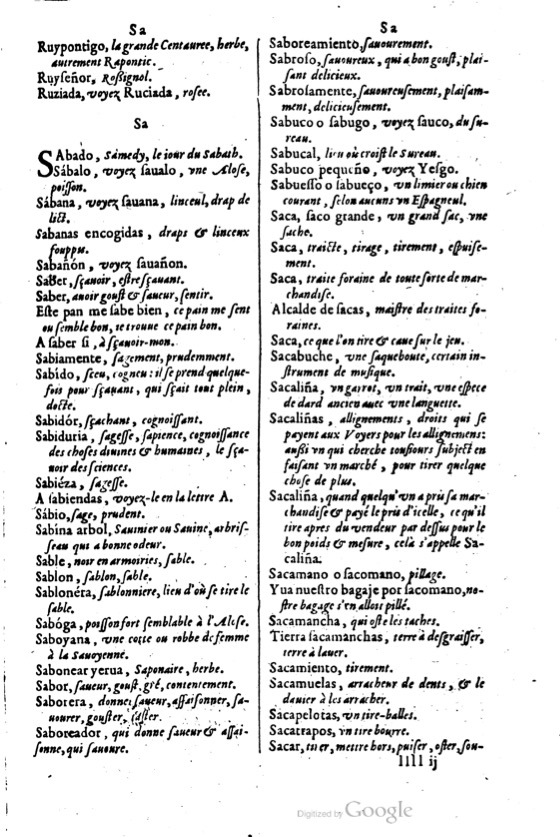 Sa
Ruypontigo, la grande Centauree, herbe,
autrement Rapontic.
Ruyſeñor, Roſſignol.
Ruziada, voyez Ruciada, roſee.
Sa
SAbado, Samedy, le iour du Sabath.
Sábalo, voyez ſaualo, vne Aloſe,
poiſſon.
Sábana, voyez ſauana, linceul, drap de
lict.
Sabanas encogidas, draps & linceux
fouppus.
Sabañón, voyez ſauañon.
Saber, ſçauoir, eſtre ſçauant.
Saber, auoir gouſt & ſaueur, ſentir.
Eſte pan me ſabe bien, ce pain me ſent
ou ſemble bon, ie trouue ce pain bon.
A ſaber ſi, à ſçauoir-mon.
Sabiamente, ſagement, prudemment.
Sabído, ſceu, cogneu: il ſe prend quelque-
fois pour ſçauant, qui ſçait tout plein,
docte.
Sabidór, ſçachant, cognoiſſant.
Sabiduria, ſageſſe, ſapience, cognoiſſance
des choſes diuines & humaines, le ſça-
uoir des ſciences.
Sabiéza, ſageſſe.
A ſabiendas, voyez-le en la lettre A.
Sábio, ſage, prudent.
Sabina arbol, Sauinier ou Sauine, arbriſ-
ſeau qui a bonne odeur.
Sable, noir en armoiries, ſable.
Sablon, ſablon, ſable.
Sablonéra, ſablonniere, lieu d'où ſe tire le
ſable.
Sabóga, poiſſon fort ſemblable à l'Aloſe.
Saboyana, vne cotte ou robbe de femme
à la Sauoyenne.
Sabonear yerua, Saponaire, herbe.
Sabor, ſaueur, gouſt, gré, contentement.
Saborera, donner ſaueur, aſſaiſonner, ſa-
uourer, gouſter, taſter.
Saboreador, qui donne ſaueur & aſſai-
ſonne, qui ſauoure.
Sa
Saboreamiento, ſauourement.
Sabroſo, ſauoureux, qui a bon gouſt, plai-
ſant delicieux.
Sabroſamente, ſauoureuſement, plaiſam-
ment, delicieuſement.
Sabuco o ſabugo, voyez ſauco, du ſu-
reau.
Sabucal, lieu où croiſt le Sureau.
Sabuco pequeño, voyez Yeſgo.
Sabueſſo o ſabueço, vn limier ou chien
courant, ſelon aucuns vn Eſpagneul.
Saca, ſaco grande, vn grand ſac, vne
ſache.
Saca, traicte, tirage, tirement, eſpuiſe-
ment.
Saca, traite foraine de toute ſorte de mar-
chandiſe.
Alcalde de ſacas, maiſtre des traites fo-
raines.
Saca, ce que l'on tire & caue ſur le jeu.
Sacabuche, vne ſaqueboute, certain in-
ſtrument de muſique.
Sacaliña, vn garrot, vn trait, vne eſpece
de dard ancien auec vne languette.
Sacaliñas, allignements, droits qui ſe
payent aux Voyers pour les allignemens:
auſſi vn qui cherche touſiours ſubject en
faiſant vn marché, pour tirer quelque
choſe de plus.
Sacaliña, quand quelqu'vn a pris ſa mar-
chandiſe & payé le pris d'icelle, ce qu'il
tire apres du vendeur par deſſus pour le
bon poids & meſure, cela s'appelle Sa-
caliña.
Sacamano o ſacomano, pillage.
Yua nueſtro bagaje por ſacomano, no-
ſtre bagage s'en alloit pillé.
Sacamancha, qui oſte les taches.
Tierra ſacamanchas, terre à deſgraiſſer,
terre à lauer.
Sacamiento, tirement.
Sacamuelas, arracheur de dents, & le
dauier à les arracher.
Sacapelotas, vn tire-balles.
Sacatrapos, vn tire bourre.
Sacar, tirer, mettre hors, puiſer, oſter, ſou-
llll ij
Digitized by Google